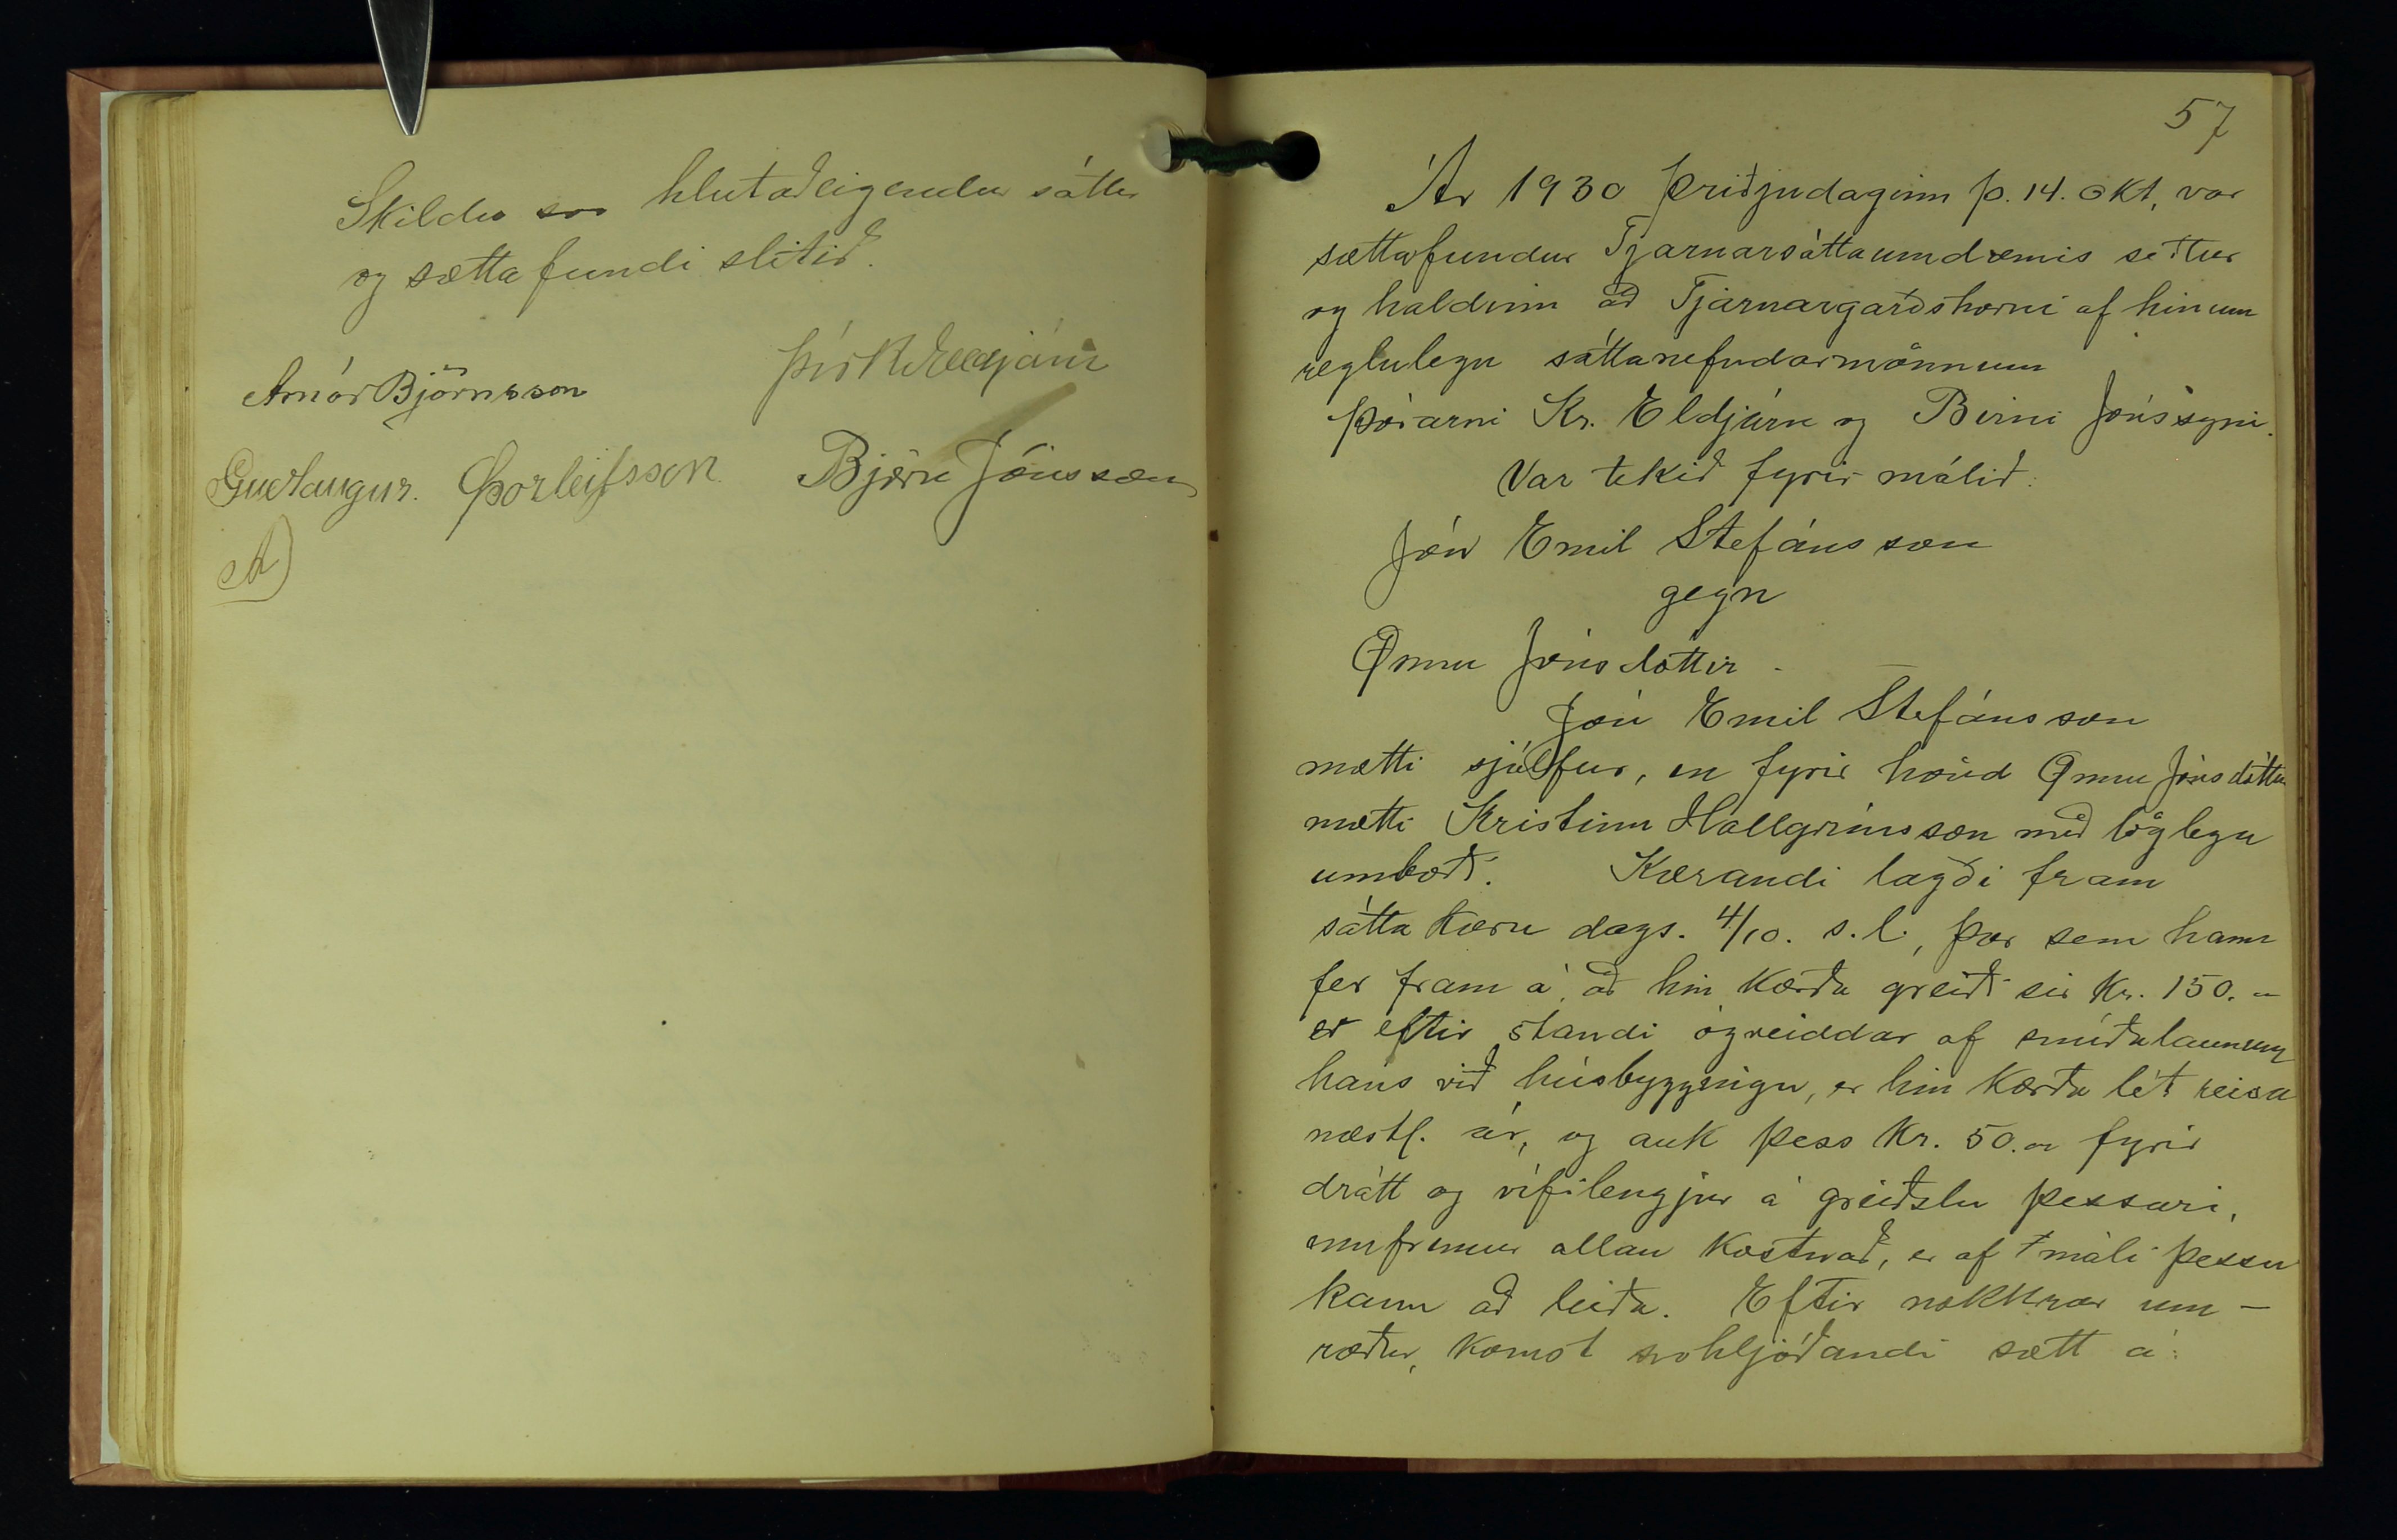 Skildu svo hlutaðeigendur sáttir
og sættafundi slitið.
Þór. Kr. Eldjárn
Arnór Björnsson
Guðlaugur. Þorleifsson
Björn Jónsson
A)
57
Ár 1930 þriðjudaginn þ. 14. okt. var
sættafundur Tjarnarsáttaumdæmis settur
og haldinn að Tjarnargarðshorni af hinum
reglulegu sáttanefndarmönnum
Þórarni Kr. Eldjárn og Birni Jónssyni.
Var tekið fyrir málið:
Jón Emil Stefánsson
gegn
Önnu Jónsdóttir -
Jón Emil Stefánsson
mætti sjálfur, en fyrir hönd Önnu Jónsdóttur
mætti Kristinn Hallgrímsson með löglegu
umboði. Kærandi lagði fram
sáttakæru dags. 4/10. s.l., þar sem hann
fer fram á, að hin kærða greiði sér kr. 150.-
er eftir standi ógreiddar af smíðalaunum
hans við húsbyggingu, er hin kærða lét reisa
næstl. ár, og auk þess kr. 50.- fyrir
drátt og vífilengjur á greiðslu þessari,
ennfremur allan kostnað, er af máli þessu
kann að leiða. Eftir nokkrar um-
ræður, komst svohljóðandi sætt á: